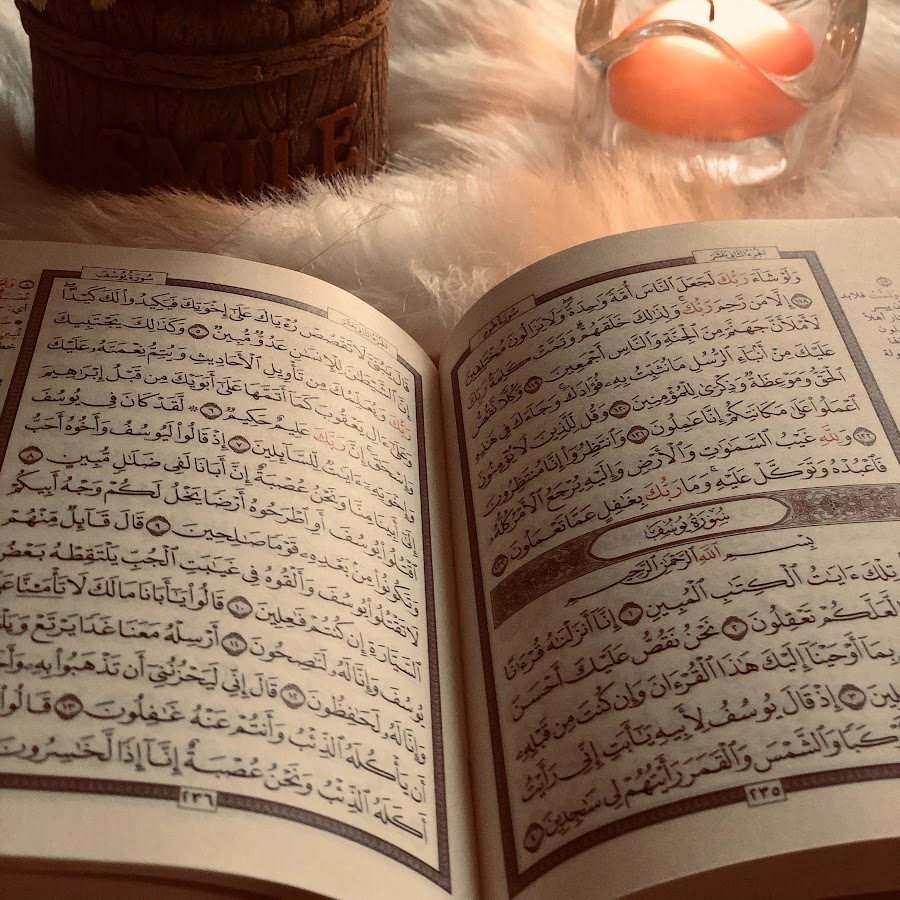 سُورَةُ هُودٍ الجُزْءُ الثَّانِي عَشَرَ
وَلَوْ شَآءَ رَبُّكَ لَجَعَلَ ٱلنَّاسَ أُمَّةً وَٰحِدَةً ۖ وَلَا يَزَالُونَ مُخْتَلِفِينَ
١١٨ إِلَّا مَن رَّحِمَ رَبُّكَ ۚ وَلِذَٰلِكَ خَلَقَهُمْ ۗ وَتَمَّتْ كَلِمَةُ رَبِّكَ
لَأَمْلَأَنَّ جَهَنَّمَ مِنَ ٱلْجِنَّةِ وَٱلنَّاسِ أَجْمَعِينَ ١١٩ وَكُلًّا نَّقُصُّ
عَلَيْكَ مِنْ أَنۢبَآءِ ٱلرُّسُلِ مَا نُثَبِّتُ بِهِۦ فُؤَادَكَ ۚ وَجَآءَكَ فِي هَٰذِهِ
ٱلْحَقُّ وَمَوْعِظَةٌ وَذِكْرَىٰ لِلْمُؤْمِنِينَ ١٢٠ وَقُل لِّلَّذِينَ لَا يُؤْمِنُونَ
ٱعْمَلُوا۟ عَلَىٰ مَكَانَتِكُمْ إِنَّا عَٰمِلُونَ ١٢١ وَٱنتَظِرُوٓا۟ إِنَّا مُنتَظِرُونَ
١٢٢ وَلِلَّهِ غَيْبُ ٱلسَّمَٰوَٰتِ وَٱلْأَرْضِ وَإِلَيْهِ يُرْجَعُ ٱلْأَمْرُ كُلُّهُۥ
فَٱعْبُدْهُ وَتَوَكَّلْ عَلَيْهِ ۚ وَمَا رَبُّكَ بِغَٰفِلٍ عَمَّا تَعْمَلُونَ ١٢٣
سُورَةُ يُوسُفَ
بِسْمِ ٱللَّهِ ٱلرَّحْمَٰنِ ٱلرَّحِيمِ
تِلْكَ ءَايَٰتُ ٱلْكِتَٰبِ ٱلْمُبِينِ ١ إِنَّآ أَنزَلْنَٰهُ قُرْءَٰنًا
لَّعَلَّكُمْ تَعْقِلُونَ ٢ نَحْنُ نَقُصُّ عَلَيْكَ أَحْسَنَ
بِمَآ أَوْحَيْنَآ إِلَيْكَ هَٰذَا ٱلْقُرْءَانَ وَإِن كُنتَ مِن قَبْلِهِۦ
لِينَ ٣ إِذْ قَالَ يُوسُفُ لِأَبِيهِ يَٰٓأَبَتِ إِنِّي رَأَيْتُ
كَبًا وَٱلشَّمْسَ وَٱلْقَمَرَ رَأَيْتُهُمْ لِي سَٰجِدِينَ ٤
٢٣٥
الجُزْءُ الثَّانِي عَشَرَ سُورَةُ يُوسُفَ
قَالَ يَٰبُنَيَّ لَا تَقْصُصْ رُءْيَاكَ عَلَىٰٓ إِخْوَتِكَ فَيَكِيدُوا۟ لَكَ كَيْدًا ۖ
إِنَّ ٱلشَّيْطَٰنَ لِلْإِنسَٰنِ عَدُوٌّ مُّبِينٌ ٥ وَكَذَٰلِكَ يَجْتَبِيكَ
رَبُّكَ وَيُعَلِّمُكَ مِن تَأْوِيلِ ٱلْأَحَادِيثِ وَيُتِمُّ نِعْمَتَهُۥ عَلَيْكَ
وَعَلَىٰٓ ءَالِ يَعْقُوبَ كَمَآ أَتَمَّهَا عَلَىٰٓ أَبَوَيْكَ مِن قَبْلُ إِبْرَٰهِيمَ
وَإِسْحَٰقَ ۚ إِنَّ رَبَّكَ عَلِيمٌ حَكِيمٌ ٦ ۞ لَّقَدْ كَانَ فِي يُوسُفَ
وَإِخْوَتِهِۦٓ ءَايَٰتٌ لِّلسَّآئِلِينَ ٧ إِذْ قَالُوا۟ لَيُوسُفُ وَأَخُوهُ أَحَبُّ
إِلَىٰٓ أَبِينَا مِنَّا وَنَحْنُ عُصْبَةٌ إِنَّ أَبَانَا لَفِي ضَلَٰلٍ مُّبِينٍ ٨
ٱقْتُلُوا۟ يُوسُفَ أَوِ ٱطْرَحُوهُ أَرْضًا يَخْلُ لَكُمْ وَجْهُ أَبِيكُمْ
وَتَكُونُوا۟ مِنۢ بَعْدِهِۦ قَوْمًا صَٰلِحِينَ ٩ قَالَ قَآئِلٌ مِّنْهُمْ
لَا تَقْتُلُوا۟ يُوسُفَ وَأَلْقُوهُ فِي غَيَٰبَتِ ٱلْجُبِّ يَلْتَقِطْهُ بَعْضُ
ٱلسَّيَّارَةِ إِن كُنتُمْ فَٰعِلِينَ ١٠ قَالُوا۟ يَٰٓأَبَانَا مَا لَكَ لَا تَأْمَ۫نَّا
يُوسُفَ وَإِنَّا لَهُۥ لَنَٰصِحُونَ ١١ أَرْسِلْهُ مَعَنَا غَدًا يَرْتَعْ وَيَلْ
وَإِنَّا لَهُۥ لَحَٰفِظُونَ ١٢ قَالَ إِنِّي لَيَحْزُنُنِيٓ أَن تَذْهَبُوا۟ بِهِۦ
أَن يَأْكُلَهُ ٱلذِّئْبُ وَأَنتُمْ عَنْهُ غَٰفِلُونَ ١٣ قَالُوا۟
أَكَلَهُ ٱلذِّئْبُ وَنَحْنُ عُصْبَةٌ إِنَّآ إِذًا لَّخَٰسِرُونَ
٢٣٦
SMILE